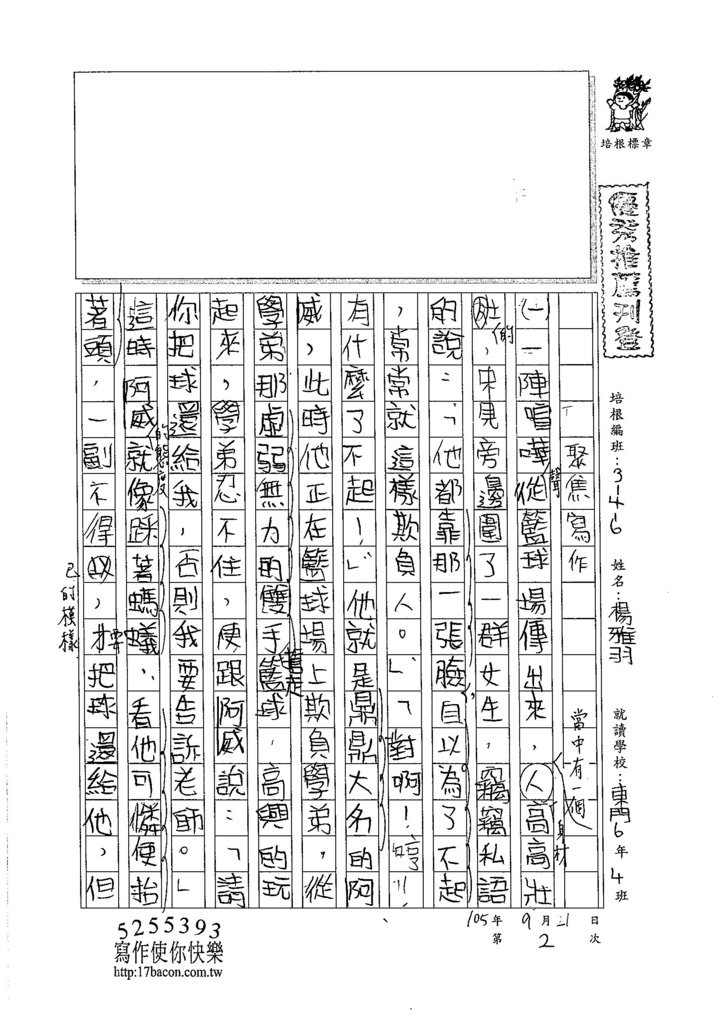 培根標章
優秀推薦刊登
培根編班：3146 姓名：楊雅羽 就讀學校：東門6年4班
105年9月21日
第2次
聚焦寫作
(一)一陣喧嘩聲從籃球場傳出來，當中有一個人身材高高壯
壯的，中見旁邊圍了一群女生，竊竊私語
的說：「他都靠那一張臉自以為了不起
，常常就這樣欺負人。」「對啊！哼！
有什麼了不起！」他就是鼎鼎大名的阿
威，此時他正在籃球場上欺負學弟，從
學弟那虛弱無力的雙手搶走籃球，高興的玩
起來，學弟忍不住，便跟阿威說：「請
你把球還給我，否則我要告訴老師。」
這時阿威就像踩著螞蟻的態度，看他可憐便抬
著頭，一副不得已的模樣，才要把球還給他，但
5255393
寫作使你快樂
http:17bacon.com.tw